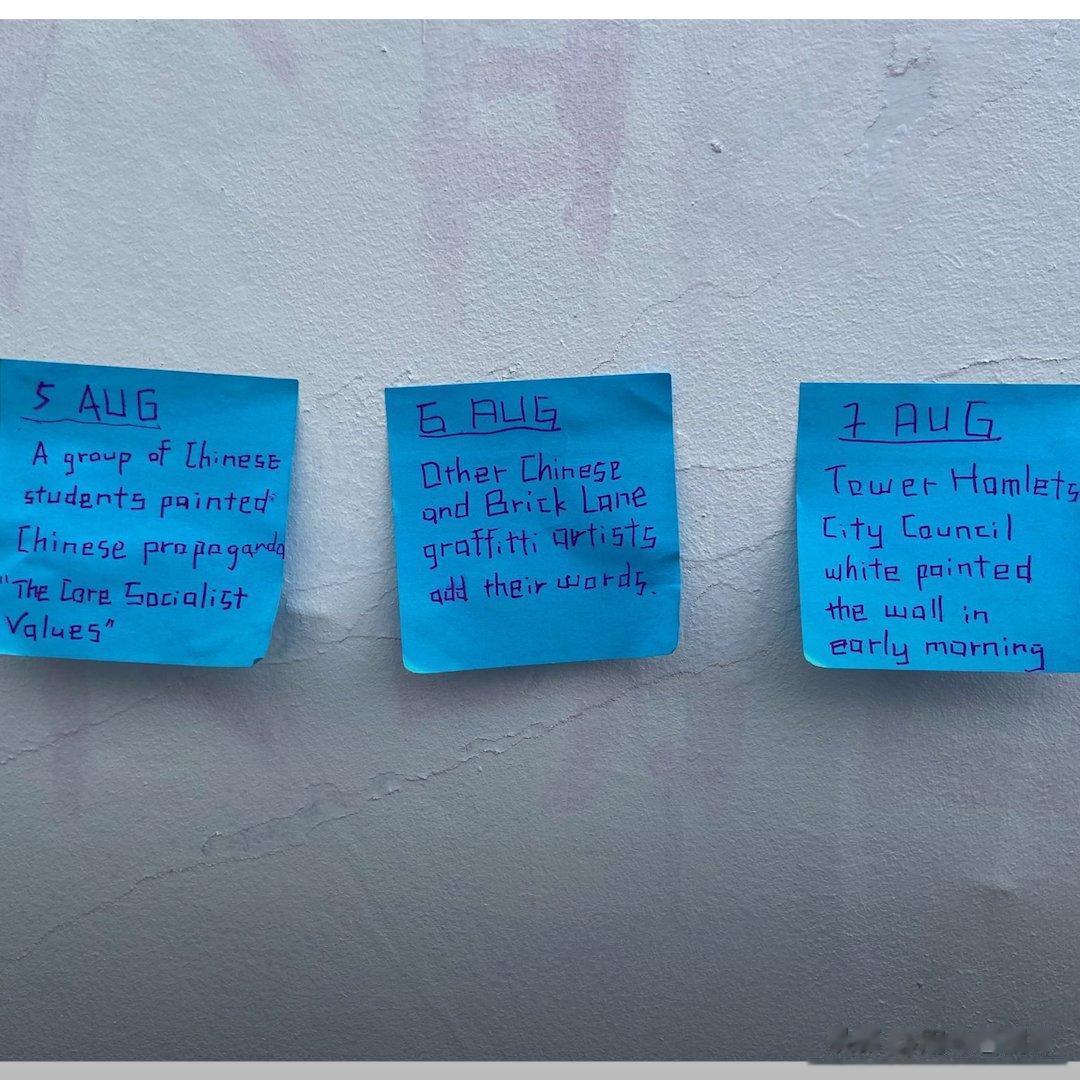 5 AUG
A group of Chinese
students painted
Chinese propaganda
"The Core Socialist
Values"
6 AUG
Other Chinese
and Brick Lane
graffitti artists
add their words.
7 AUG
Tower Hamlets
City Council
white painted
the wall in
early morning